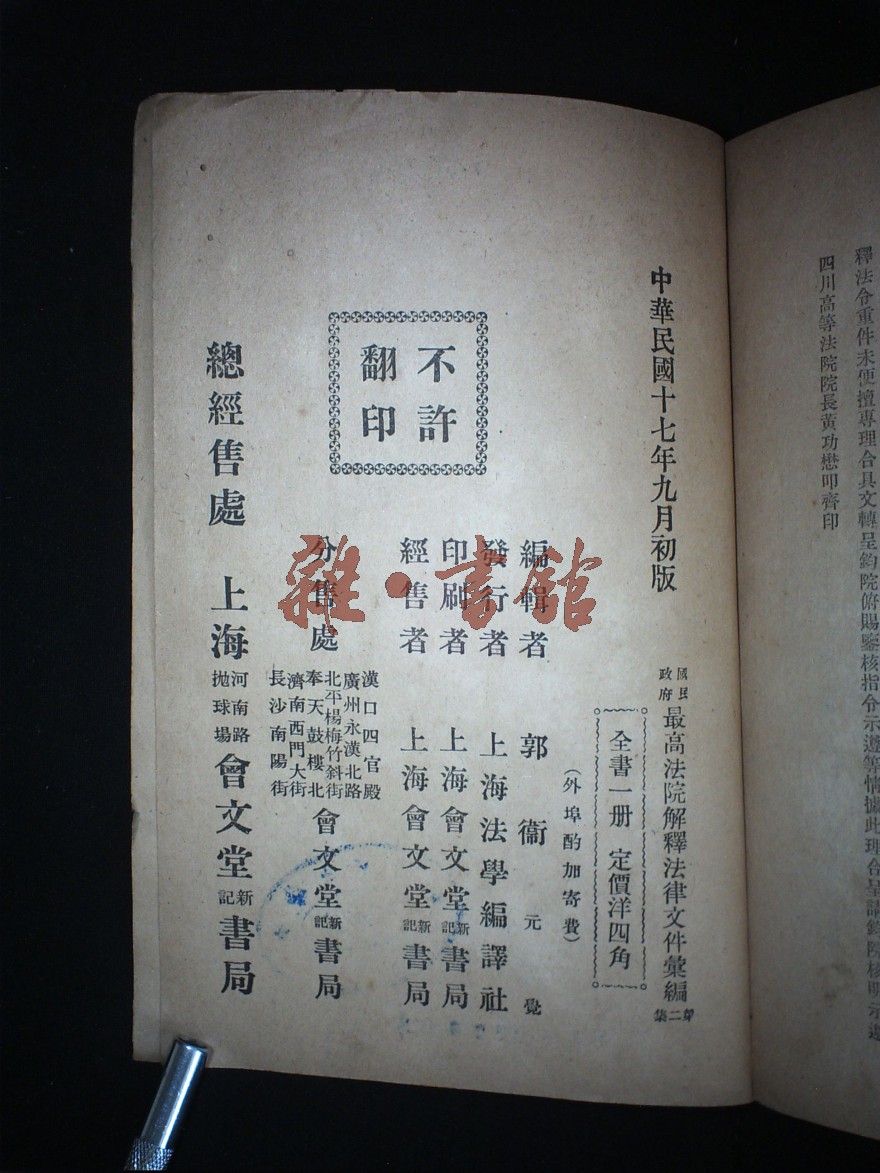 釋法令重件未便擅專理合具文轉呈鈞院俯賜鑒核指令示遵等情據此理合呈請鈞院核明示遵
四川高等法院院長黃功懋叩齊印
中華民國十七年九月初版
國民政府最高法院解釋法律文件彙編第二集
全書一册 定價洋四角
(外埠酌加寄費)
編輯者 郭衞元覺
發行者 上海法學編譯社
印刷者 上海會文堂新記書局
經售者 上海會文堂新記書局
不許
翻印
分售處
漢口四官殿
廣州永漢北路
北平楊梅竹斜街
奉天鼓樓北
濟南西門大街
長沙南陽街
會文堂新記書局
總經售處 上海河南路拋球場會文堂新記書局
雜·書館